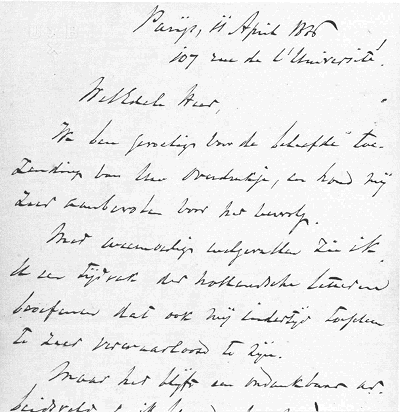 Parijs, 11 April 1886
107 rue de l'Université.
WelEdele Heer,
Uw ben gevoelig voor de beleefde toe-
zending van Uw Overdrukje, en houd mij
zeer aanbevolen voor het vervolg.
Met weemoedig welgevallen zie ik
U een tijdvak der hollandsche letteren
beoefenen dat ook mij indertijd toescheen
te zeer verwaarloosd te zijn.
Maar het blijft een ondankbaar ar-